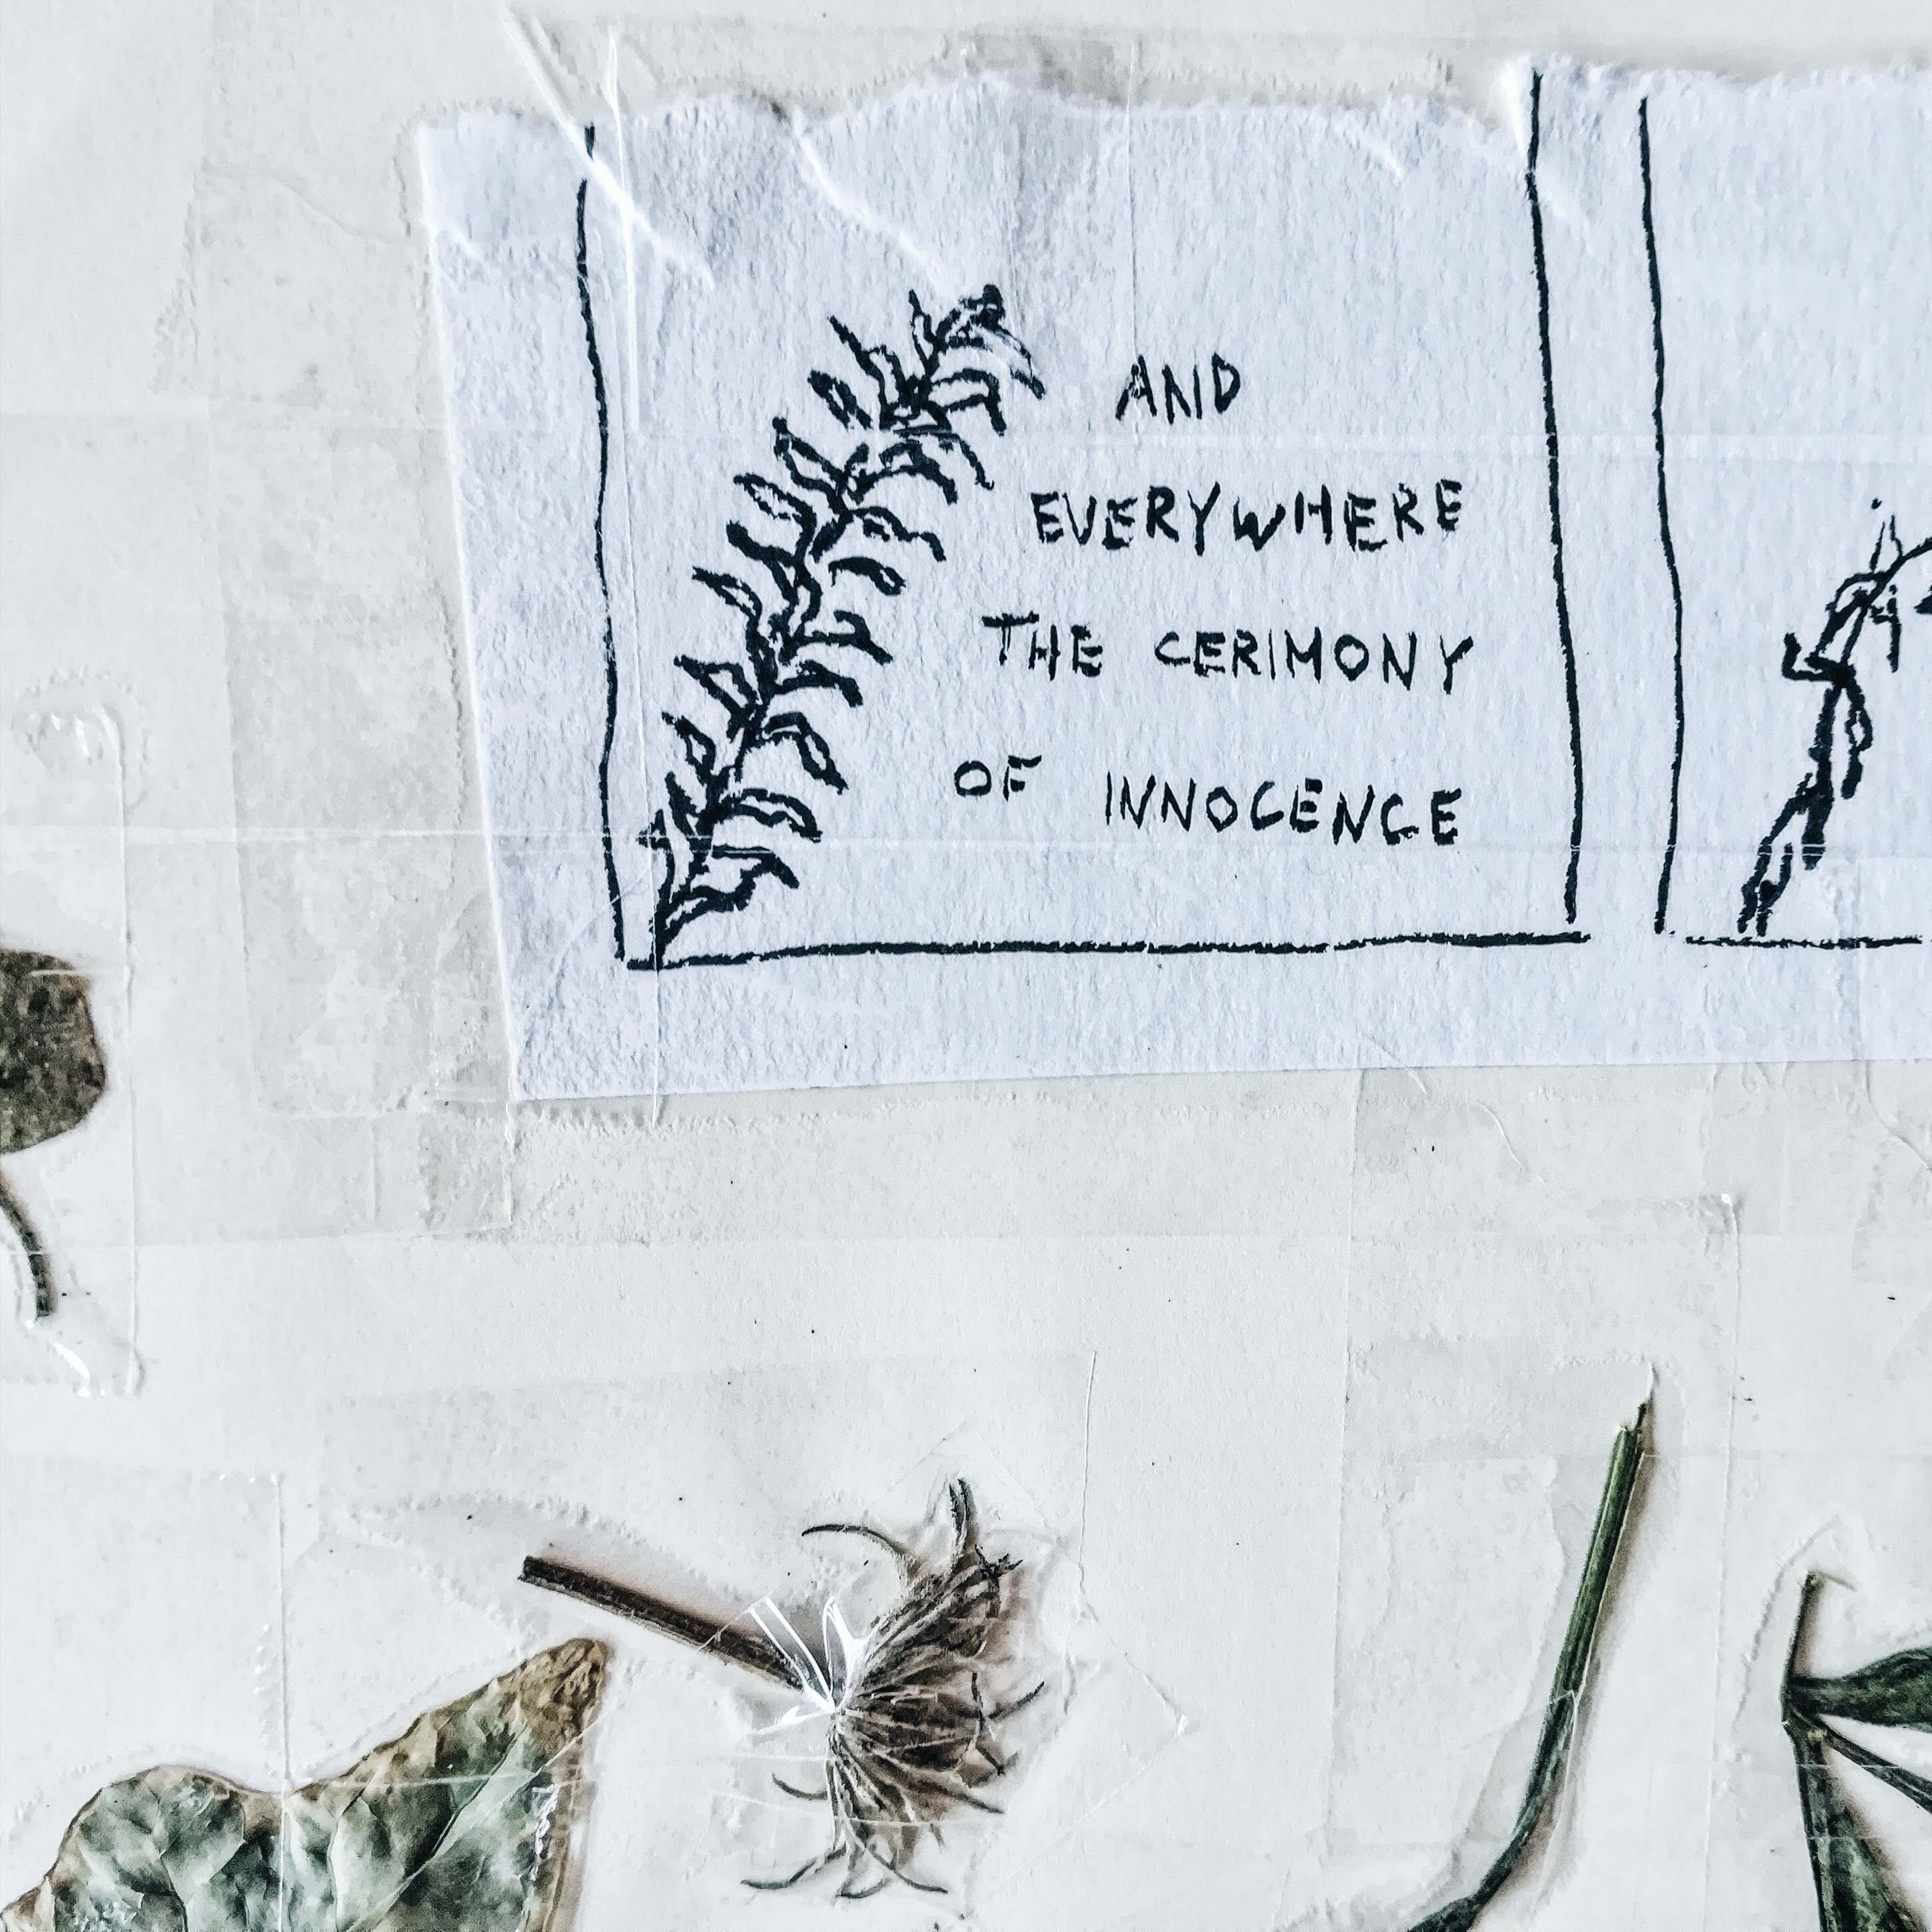 AND
EVERYWHERE
THE CERIMONY
OF INNOCENCE